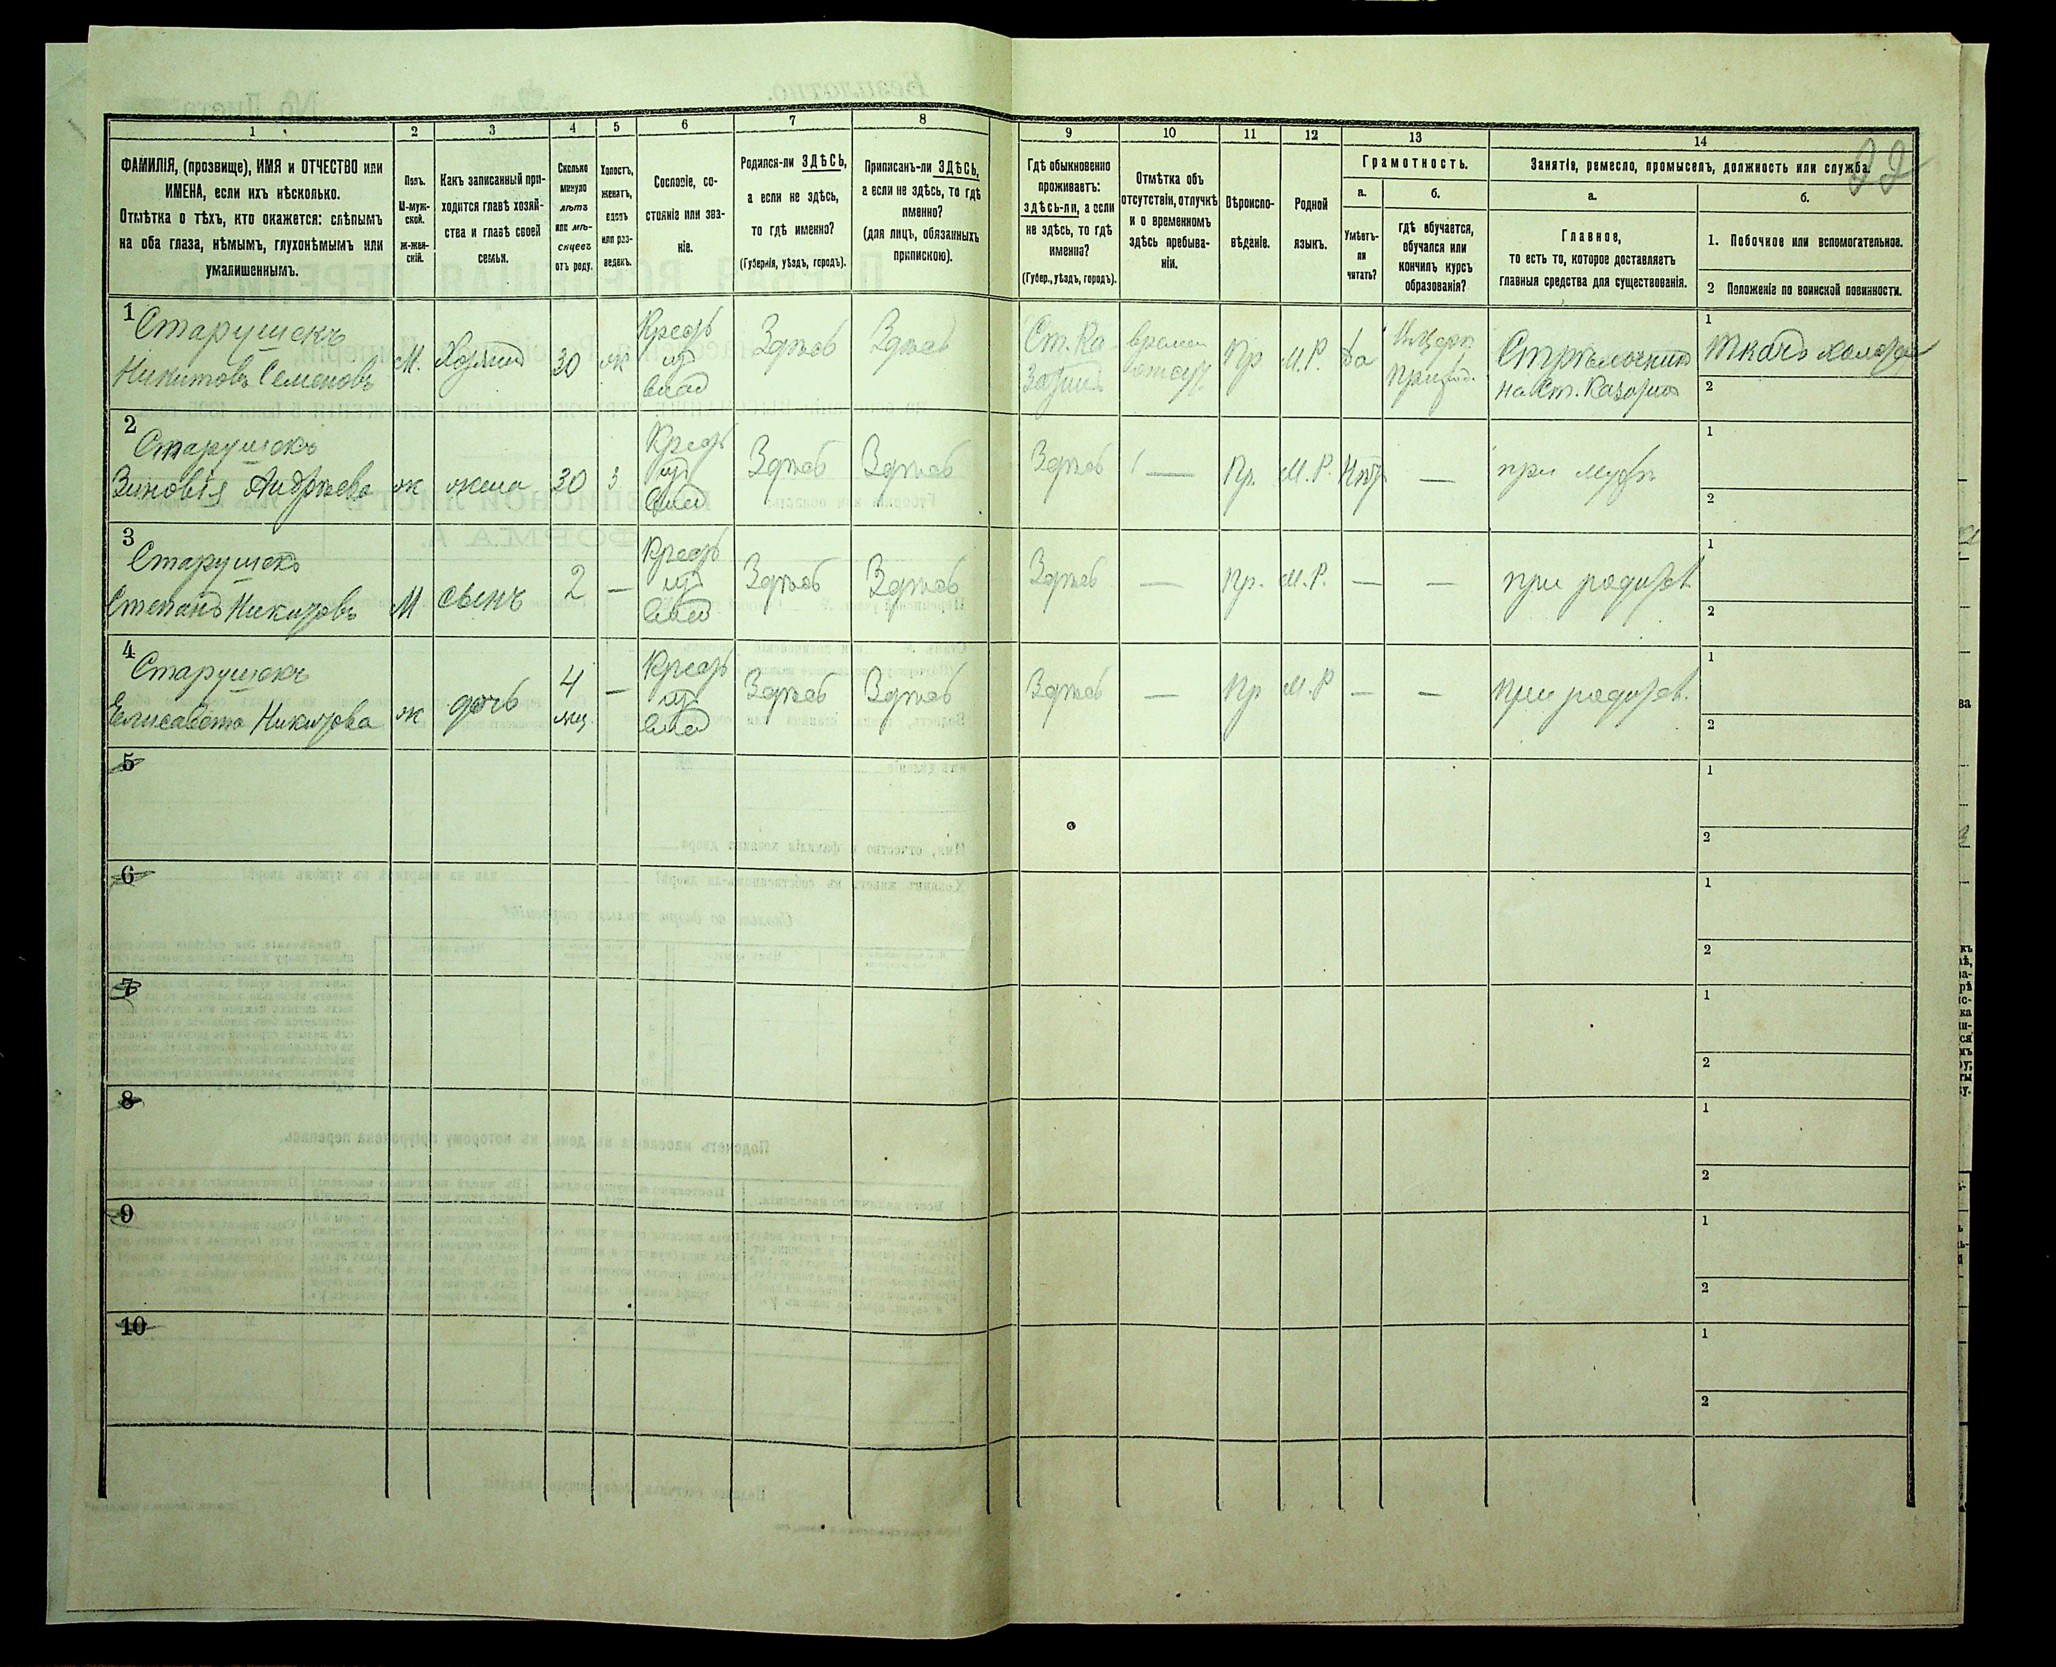 22
1
2
3
4
5
6
7
8
9
10
11
12
13
14
ФАМИЛІЯ, (прозвище), ИМЯ и ОТЧЕСТВО или
ИМЕНА, если ихъ нѣсколько.
Отмѣтка о тѣхъ, кто окажется: слѣпымъ
на оба глаза, нѣмымъ, глухонѣмымъ или
умалишеннымъ.
Полъ.
М-муж-
ской.
ж-жен-
скій.
Какъ записанный при-
ходится главѣ хозяй-
ства и главѣ своей
семьи.
Сколько
минуло
лѣтъ
или мѣ-
сяцевъ
отъ роду.
Холостъ,
женатъ,
вдовъ
или раз-
веденъ.
Сословіе, со-
стояніе или зва-
ніе.
Родился-ли ЗДѢСЬ,
а если не здѣсь,
то гдѣ именно?
(Губернія, уѣздъ, городъ).
Приписанъ-ли ЗДѢСЬ,
а если не здѣсь, то гдѣ
именно?
(для лицъ, обязанныхъ
припискою).
Гдѣ обыкновенно
проживаетъ:
здѣсь-ли, а если
не здѣсь, то гдѣ
именно?
(Губер., уѣздъ, городъ).
Отмѣтка объ
отсутствіи, отлучкѣ
и о временномъ
здѣсь пребыва-
ніи.
Вѣроиспо-
вѣданіе.
Родной
языкъ.
Грамотность.
а.
Умѣетъ-
ли
читать?
б.
гдѣ обучается,
обучался или
кончилъ курсъ
образованія?
Занятія, ремесло, промыселъ, должность или служба.
а.
Главное,
то есть то, которое доставляетъ
главныя средства для существованія.
б.
1. Побочное или вспомогательное.
2 Положеніе по воинской повинности.
1
Старушекъ
Никитовъ Семеновъ
М.
Хозяинъ
30
ж
Крест
из
влад
Здѣсь
Здѣсь
Ст. Ка
затин
времен
отсут
Пр
М.Р.
Да
Стрѣлочник
на Ст. Казатин
1
Ткачь
2
2
Старушекъ
Зиновія Андрѣева
ж
жена
30
з
Крест
из
влад
Здѣсь
Здѣсь
Здѣсь
—
Пр.
М.Р.
Нѣт
—
при мужѣ
1
2
3
Старушекъ
Степанъ Никитовъ
М
сынъ
2
—
Крест
из
влад
Здѣсь
Здѣсь
Здѣсь
—
Пр.
М.Р.
—
—
при родител.
1
2
4
Старушекъ
Елисавета Никитова
ж
дочь
4
мц.
—
Крест
из
влад
Здѣсь
Здѣсь
Здѣсь
—
Пр
М.Р
—
—
при родител.
1
2
5
1
2
6
1
2
7
1
2
8
1
2
9
1
2
10
1
2